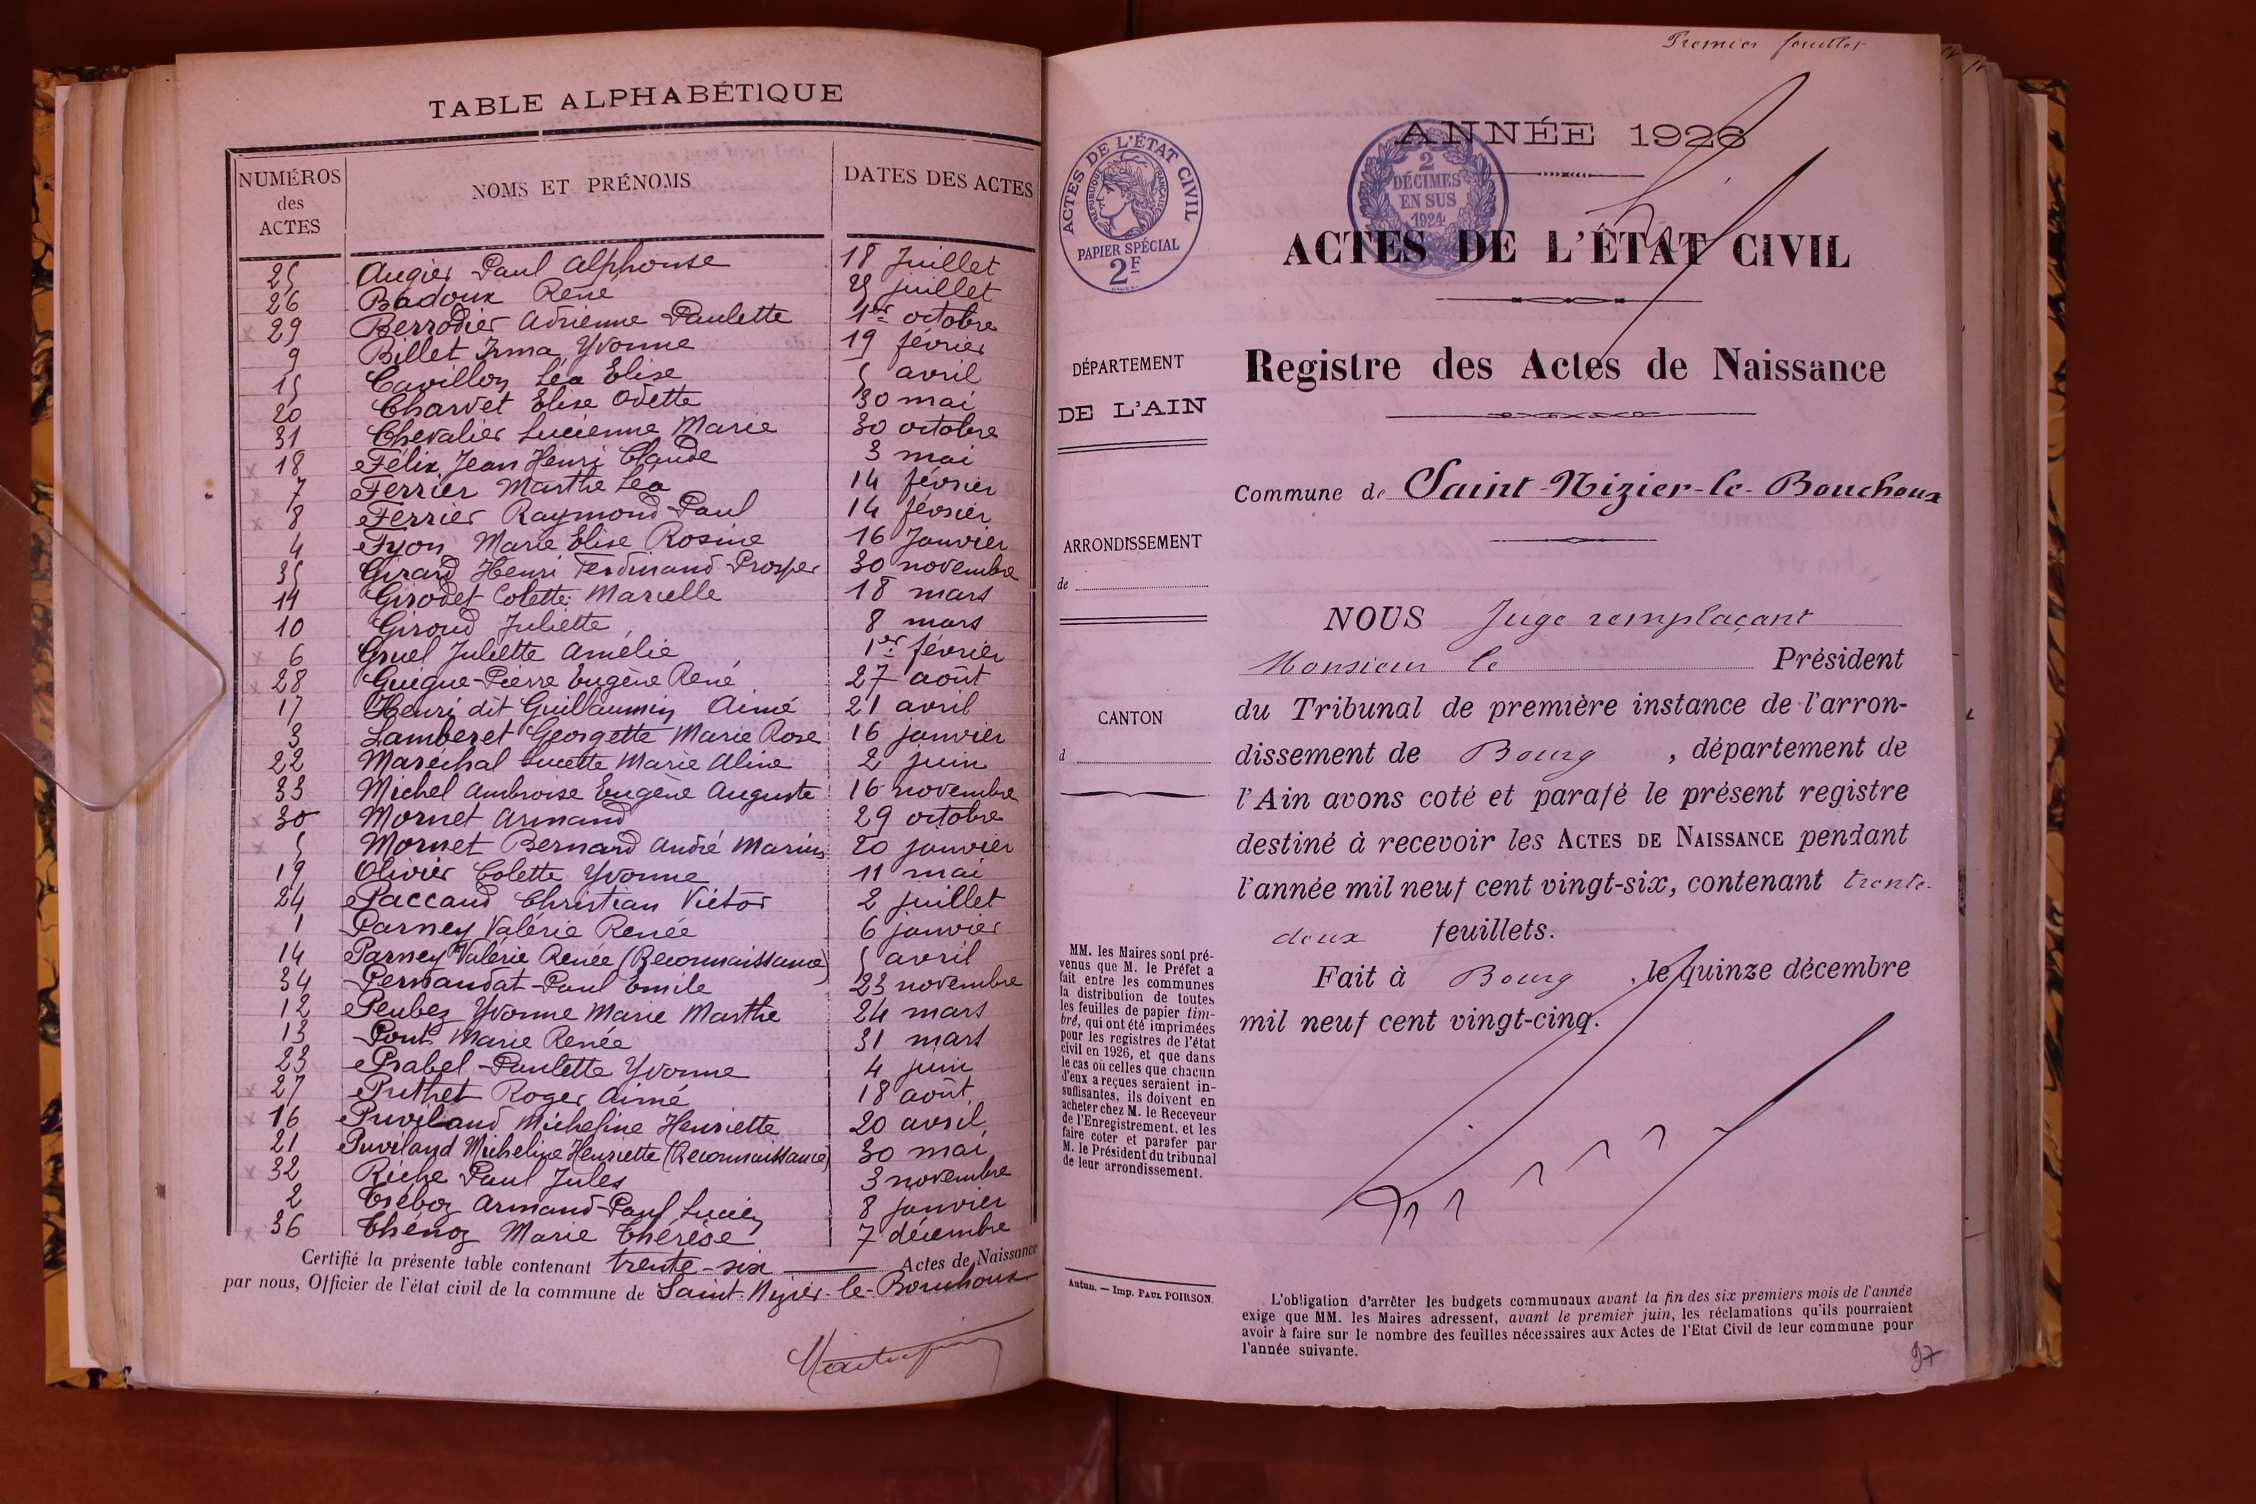 TABLE ALPHABÉTIQUE
NUMÉROS des ACTES NOMS ET PRÉNOMS DATES DES ACTES
25 Augier Paul Alphonse 18 Juillet
26 Badoux René 25 juillet
29 Berrodier Adrienne Paulette 1er octobre
9 Billet Irma Yvonne 19 février
15 Cavillon Léa Elise 5 avril
20 Charvet Elise Odette 30 mai
31 Chevalier Lucienne Marie 30 octobre
18 Félix Jean Henri Claude 3 mai
7 Ferrier Marthe Léa 14 février
8 Ferrier Raymond Paul 14 février
4 Fyon Marie Elise Rosine 16 Janvier
35 Girard Henri Ferdinand Prosper 30 novembre
11 Girodet Colette Marielle 18 mars
10 Giroud Juliette 8 mars
6 Gruel Juliette Amélie 1er février
28 Guigue Pierre Eugène René 27 août
17 Henri dit Guillaumin Aimé 21 avril
3 Lamberet Georgette Marie Rose 16 janvier
22 Maréchal Lucette Marie Aline 2 juin
33 Michel Ambroise Eugène Auguste 16 novembre
30 Mornet Armand 29 octobre
5 Mornet Bernard André Marius 20 janvier
19 Olivier Colette Yvonne 11 mai
24 Paccaud Christian Victor 2 juillet
1 Parney Valérie Renée 6 janvier
14 Parney Valérie Renée (Reconnaissance) 5 avril
34 Pernaudat Paul Emile 23 novembre
12 Peubez Yvonne Marie Marthe 24 mars
13 Pont Marie Renée 31 mars
23 Prabel Paulette Yvonne 4 juin
27 Puthet Roger Aimé 18 août
16 Puviland Micheline Henriette 20 avril
21 Puviland Micheline Henriette (Reconnaissance) 30 mai
32 Riche Paul Jules 3 novembre
2 Tréboz Armand Paul Lucien 8 janvier
36 Thénoz Marie Thérèse 7 décembre
Certifié la présente table contenant trente-six Actes de Naissance
par nous, Officier de l'état civil de la commune de Saint-Nizier-le-Bouchoux
Premier feuillet
ANNÉE 1926
ACTES DE L'ÉTAT CIVIL
RÉPUBLIQUE FRANÇAISE
PAPIER SPÉCIAL
2F
2
DÉCIMES
EN SUS
1924
ACTES DE L'ÉTAT CIVIL
Registre des Actes de Naissance
DÉPARTEMENT
DE L'AIN
ARRONDISSEMENT
de
CANTON
d
Commune de Saint-Nizier-le-Bouchoux
NOUS Juge remplaçant
Monsieur le Président
du Tribunal de première instance de l'arron-
dissement de Bourg, département de
l'Ain avons coté et parafé le présent registre
destiné à recevoir les ACTES DE NAISSANCE pendant
l'année mil neuf cent vingt-six, contenant trente-
deux feuillets.
Fait à Bourg, le quinze décembre
mil neuf cent vingt-cinq.
MM. les Maires sont pré-
venus que M. le Préfet a
fait entre les communes
la distribution de toutes
les feuilles de papier tim-
bré, qui ont été imprimées
pour les registres de l'état
civil en 1926, et que dans
le cas où celles que chacun
d'eux a reçues seraient in-
suffisantes, ils doivent en
acheter chez M. le Receveur
de l'Enregistrement, et les
faire coter et parafer par
M. le Président du tribunal
de leur arrondissement.
Autun. — Imp. PAUL POIRSON.
L'obligation d'arrêter les budgets communaux avant la fin des six premiers mois de l'année
exige que MM. les Maires adressent, avant le premier juin, les réclamations qu'ils pourraient
avoir à faire sur le nombre des feuilles nécessaires aux Actes de l'Etat Civil de leur commune pour
l'année suivante.
97